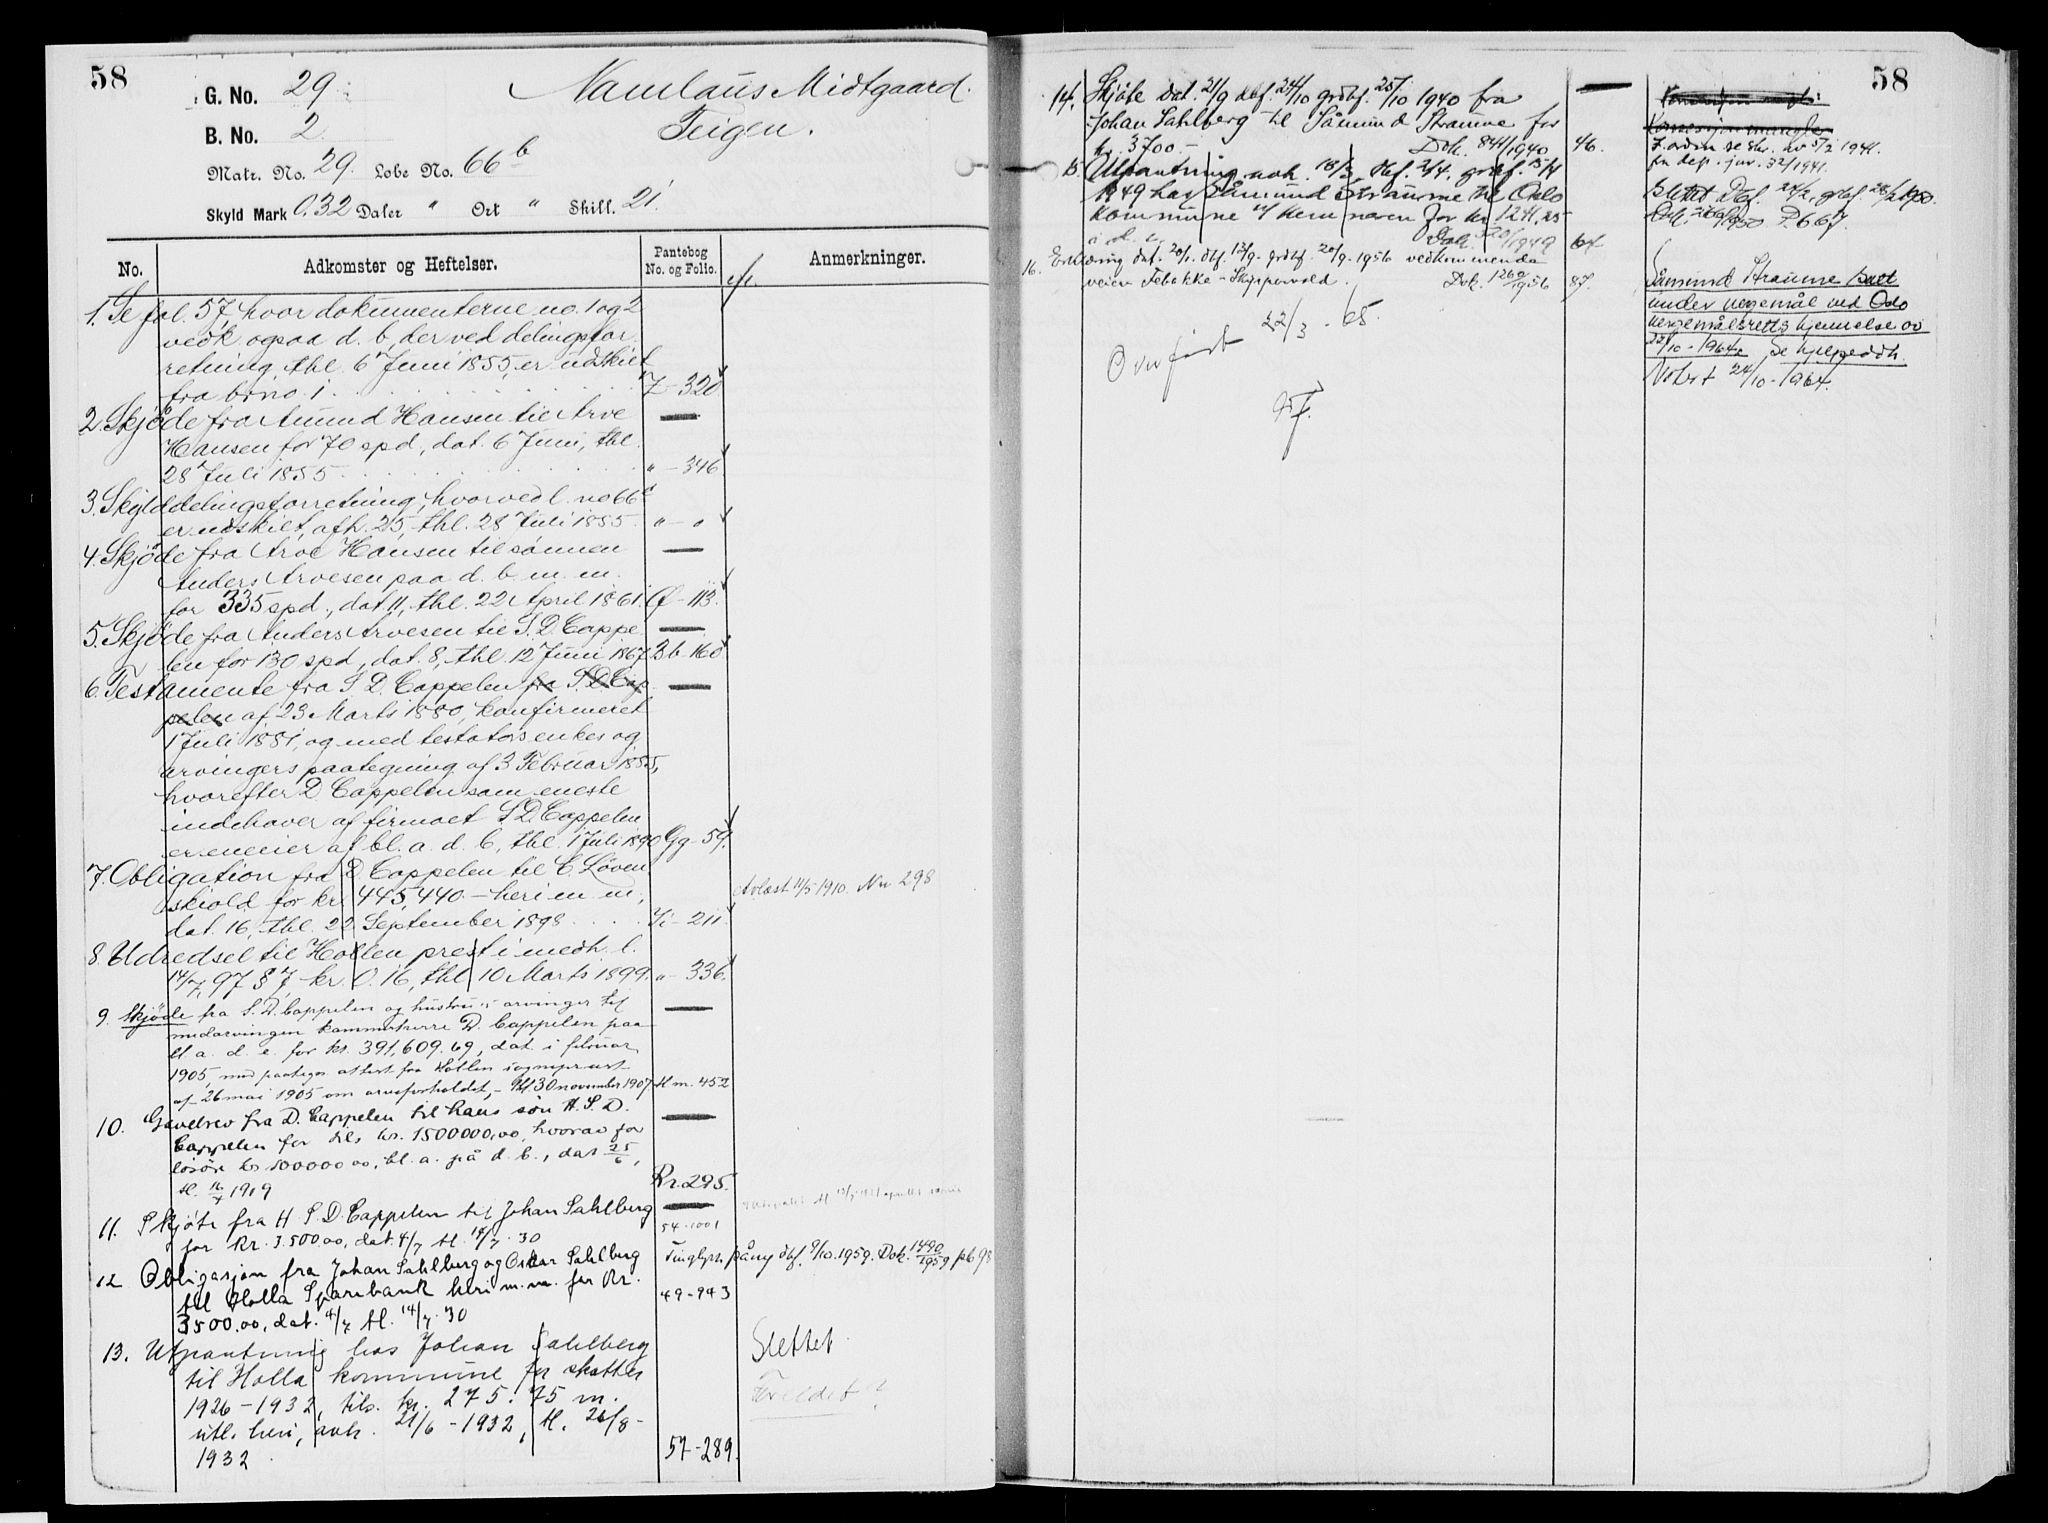 58
G. No. 29.
B. No. 2.
Matr. No. 29. Løbe No. 66 b
Skyld Mark 0.32 Daler " Ort " Skill. 21.
Namlaus Midtgaard.
Teigen.
No. Adkomster og Heftelser. Pantebog No. og Folio. Anmerkninger.
1. Se fol. 57, hvor dokumenterne no. 1 og 2
vedk. ogsaa d. b, der ved delingsfor.
retning, thl. 6 Juni 1855, er udskilt
fra br.no. 1. Z - 320
2. Skjøde fra Amund Hansen til Arve
Hansen for 70 spd., dat. 6 Juni, thl.
28 Juli 1855. " - 346
3. Skylddelingsforretning, hvorved l. no 66 c
er udskilt, afh. 25, thl. 28 Juli 1855. " - "
4. Skjøde fra Arve Hansen til sønnen
Anders Arvesen paa d. b. m. m.
for 335 spd., dat. 11, thl. 22 April 1861. Ø - 113.
5. Skjøde fra Anders Arvesen til S. D. Cappe
len for 130 spd, dat. 8, thl. 12 Juni 1867 Bb - 160
6. Testamente fra S. D. Cappelen fra S. D. Cap
pelen af 23 Marts 1880, konfirmeret
1 Juli 1881, og med testators enkes og
arvingers paategning af 3 Februar 1885,
hvorefter D. Cappelen som eneste
indehaver af firmaet S. D. Cappelen
er eneier af bl. a. d. b., thl. 1 Juli 1890 Gg - 59.
7. Obligation fra D. Cappelen til C. Løven
skiold for kr. 445,440. - heri m. m.,
dat. 16, thl. 22 September 1898 Ii - 211.
Avlæst 11/5 1910. Nr 298
8. Udredsel til Hollen prest i medh. l.
14/7, 97 § 7 kr. 0. 16, thl. 10 Marts 1899. " - 336.
9. Skjøde fra S. D. Cappelen og hustrus arvinger til
medarvingen kammerherre D. Cappelen paa
bl a. d. e. for kr. 391,609.69, dat. i februar
1905, med paategn. attest fra Hollen sogneprest
af 26 mai 1905 om arveforholdet, - thl 30 november 1907 M m. 452
10. Gavebrev fra D. Cappelen til hans søn H. S. D.
Cappelen for tils. kr. 1500000,00, hvorav for
løsøre kr 500000 00, bl. a. på d. b., dat 25/6,
tl. 16/7 1919 Rr. 295.
11. Skjøte fra H S. D. Cappelen til Johan Sahlberg
for Kr. 3.500.00, dat. 4/7 tl. 14/7. 30 54 - 1001
12 Obligasjon fra Johan Sahlberg og Oskar Sahlberg
til Holla Sparebank heri m. m. for Kr.
3500.00, dat. 4/7 tl. 14/7. 30 49 - 943
Tinglyst påny dbf. 9/10. 1959. Dok. 1490/1959 pb 98
13. Utpantning hos Johan Sahlberg
til Holla kommune for skatter
1926 - 1932, tils. kr. 275. 75 m.
utl. heri, avh. 21/6 - 1932, tl. 26/8 -
1932. 57 - 289.
Slettet
Foreldet?
58
14. Skjøte dat. 21/9 dbf. 24/10 grdbf. 25/10 1940 fra
Johan Sahlberg til Såmund Straume for
kr. 3700. - Dok. 841/1940 46.
15. Utpantning avh. 18/3, dbf. 2/4, grbf. 15/4
1949 hos Såmund Straume til Oslo
Kommune v/ kemneren for kr 1241,25
Dok. 320/1949 64
Slettet Dbf. 24/2, grbf. 28/2 1950.
16. Erklæring dat. 20/1. dbf. 12/9. grdbf. 20/9. 1956 vedkommende
veien Febakke - Skippervold. Dok. 1260/1956 87.
Såmund Straume satt
under vergemål ved Oslo
vergemålsretts kjennelse av
22/10 - 1964. Se hjelpedok.
Notert 24/10 - 1964.
Overført 22/3 - 65.